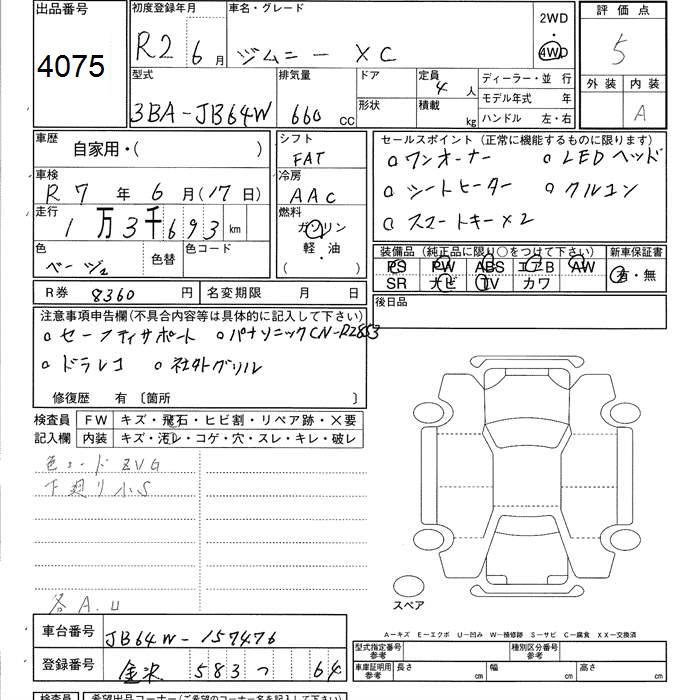 出品番号 初度登録年月 車名・グレード 2WD 評価点
4075 R2 6月 ジムニー XC 4WD 5
型式 排気量 ドア 定員 4人 ディーラー・並行 外装 内装
3BA-JB64W 660cc 形状 積載 kg モデル年式 年 A
ハンドル 左・右
車歴 自家用・( ) シフト FAT セールスポイント(正常に機能するものに限ります)
車検 R7年6月(17日) 冷房 AAC ○ワンオーナー ○LEDヘッド
走行 1万3千693km 燃料 ガソリン ○シートヒーター ○クルコン
軽・油 ○スマートキー×2
色 ベージュ 色替 色コード ( )
装備品(純正品に限り○をつけて下さい) 新車保証書
PS PW ABS エアB AW 有・無
SR ナビ TV カワ
R券 8360円 名変期限 月 日 後日品
注意事項申告欄(不具合内容等は具体的に記入して下さい)
○セーフティサポート ○パナソニックCN-RZ853
○ドラレコ ○社外グリル
修復歴 有〔箇所 〕
検査員 FW キズ・飛石・ヒビ割・リペア跡・X要
記入欄 内装 キズ・汚レ・コゲ・穴・スレ・キレ・破レ
色コードZVG
下廻り小S
各A.U
スペア
A-キズ E-エクボ U-凹み W-補修跡 S-サビ C-腐食 XX-交換済
車台番号 JB64W-157476
型式指定番号 参考 種別区分番号 参考
登録番号 金沢 583 つ 64
車庫証明用 参考 長さ cm 幅 cm 高さ cm
検査員 希望出品コーナー(ご希望のコーナー名を記入して下さい)